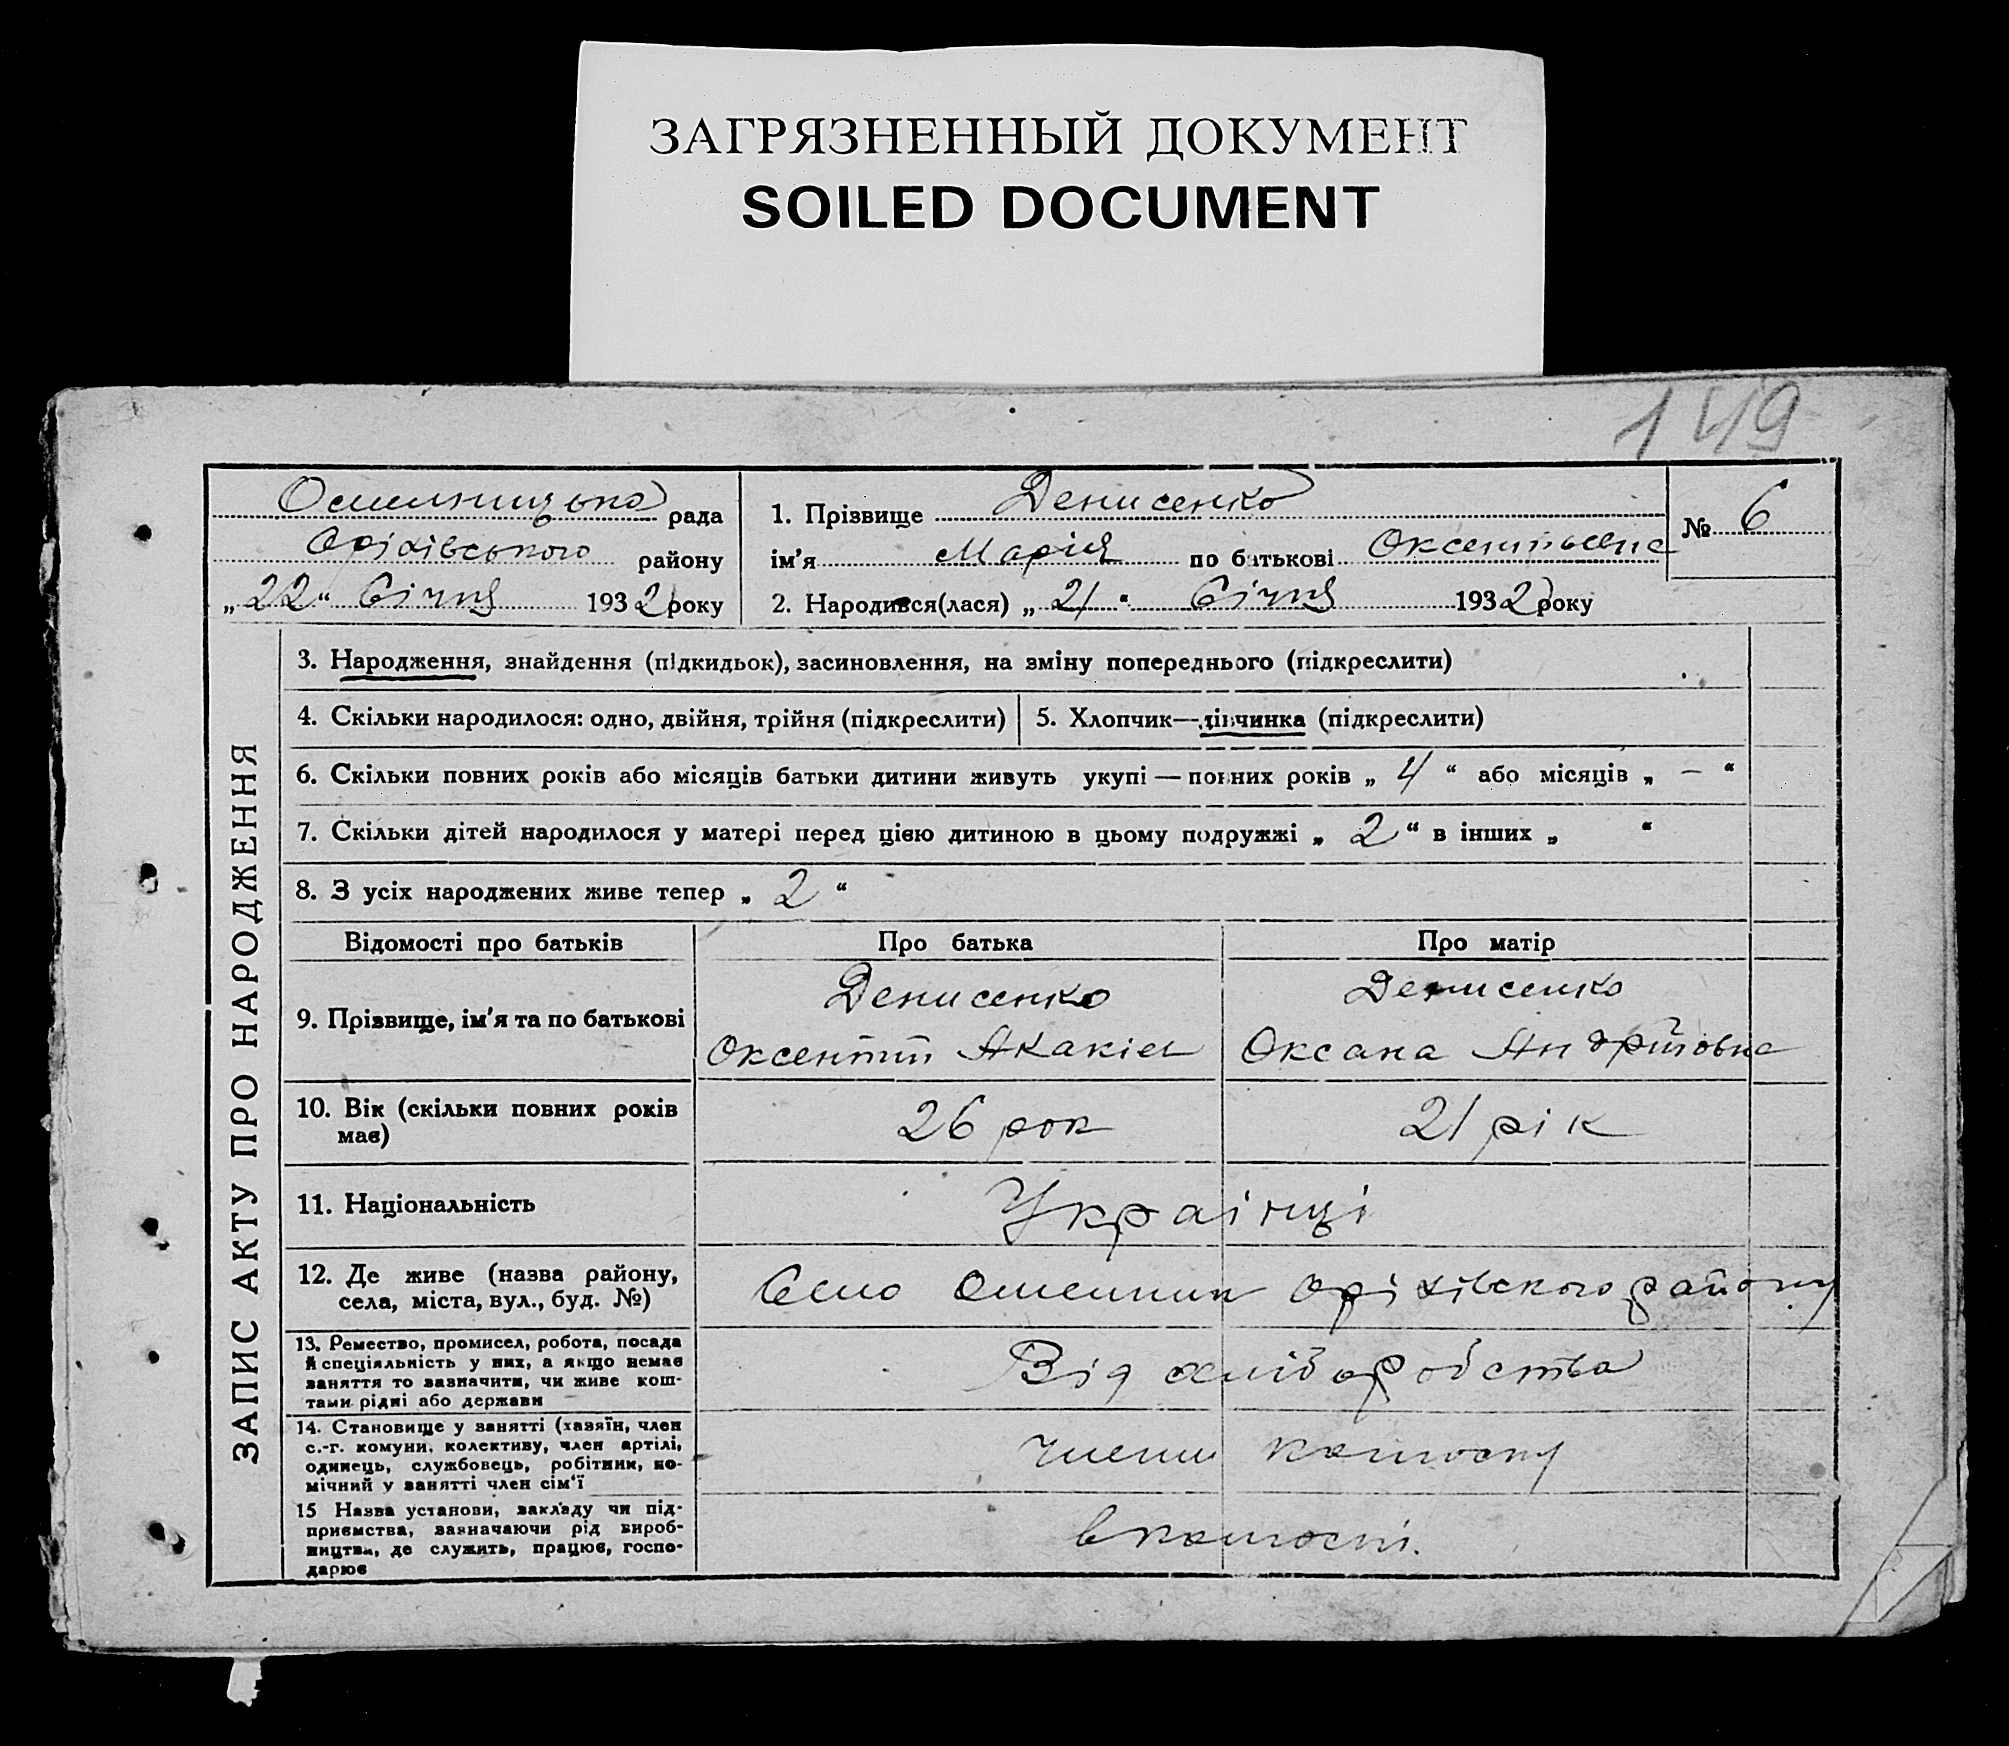 ЗАГРЯЗНЕННЫЙ ДОКУМЕНТ
SOILED DOCUMENT
149
Омельницька рада
Оріхівського району
„22“ Січня 1932 року
1. Прізвище Денисенко
ім'я Марія по батькові Оксентьевна
2. Народився(лася) „21“ Січня 1932 року
№ 6
ЗАПИС АКТУ ПРО НАРОДЖЕННЯ
3. Народження, знайдення (підкидьок), засиновлення, на зміну попереднього (підкреслити)
4. Скільки народилося: одно, двійня, трійня (підкреслити)
5. Хлопчик—дівчинка (підкреслити)
6. Скільки повних років або місяців батьки дитини живуть укупі — повних років „ 4 “ або місяців „ — “
7. Скільки дітей народилося у матері перед цією дитиною в цьому подружжі „ 2 “ в інших „ “
8. З усіх народжених живе тепер „ 2 “
Відомості про батьків
Про батька
Про матір
9. Прізвище, ім'я та по батькові
Денисенко
Оксентий Акакіев
Денисенко
Оксана Андрійовна
10. Вік (скільки повних років
має)
26 рок
21 рік
11. Національність
Украінці
12. Де живе (назва району,
села, міста, вул., буд. №)
Село Омельник Оріхівского району
13. Ремество, промисел, робота, посада
й спеціяльність у них, а якщо немає
заняття то зазначити, чи живе кош-
тами рідні або держави
Від хліборобства
14. Становище у занятті (хазяїн, член
с.-г. комуни, колективу, член артілі,
одинець, службовець, робітник, по-
мічний у занятті член сім'ї
члени колгоспу
15 Назва установи, закладу чи під-
приємства, зазначаючи рід вироб-
ництва, де служить, працює, госпо-
дарює
в колгоспі.